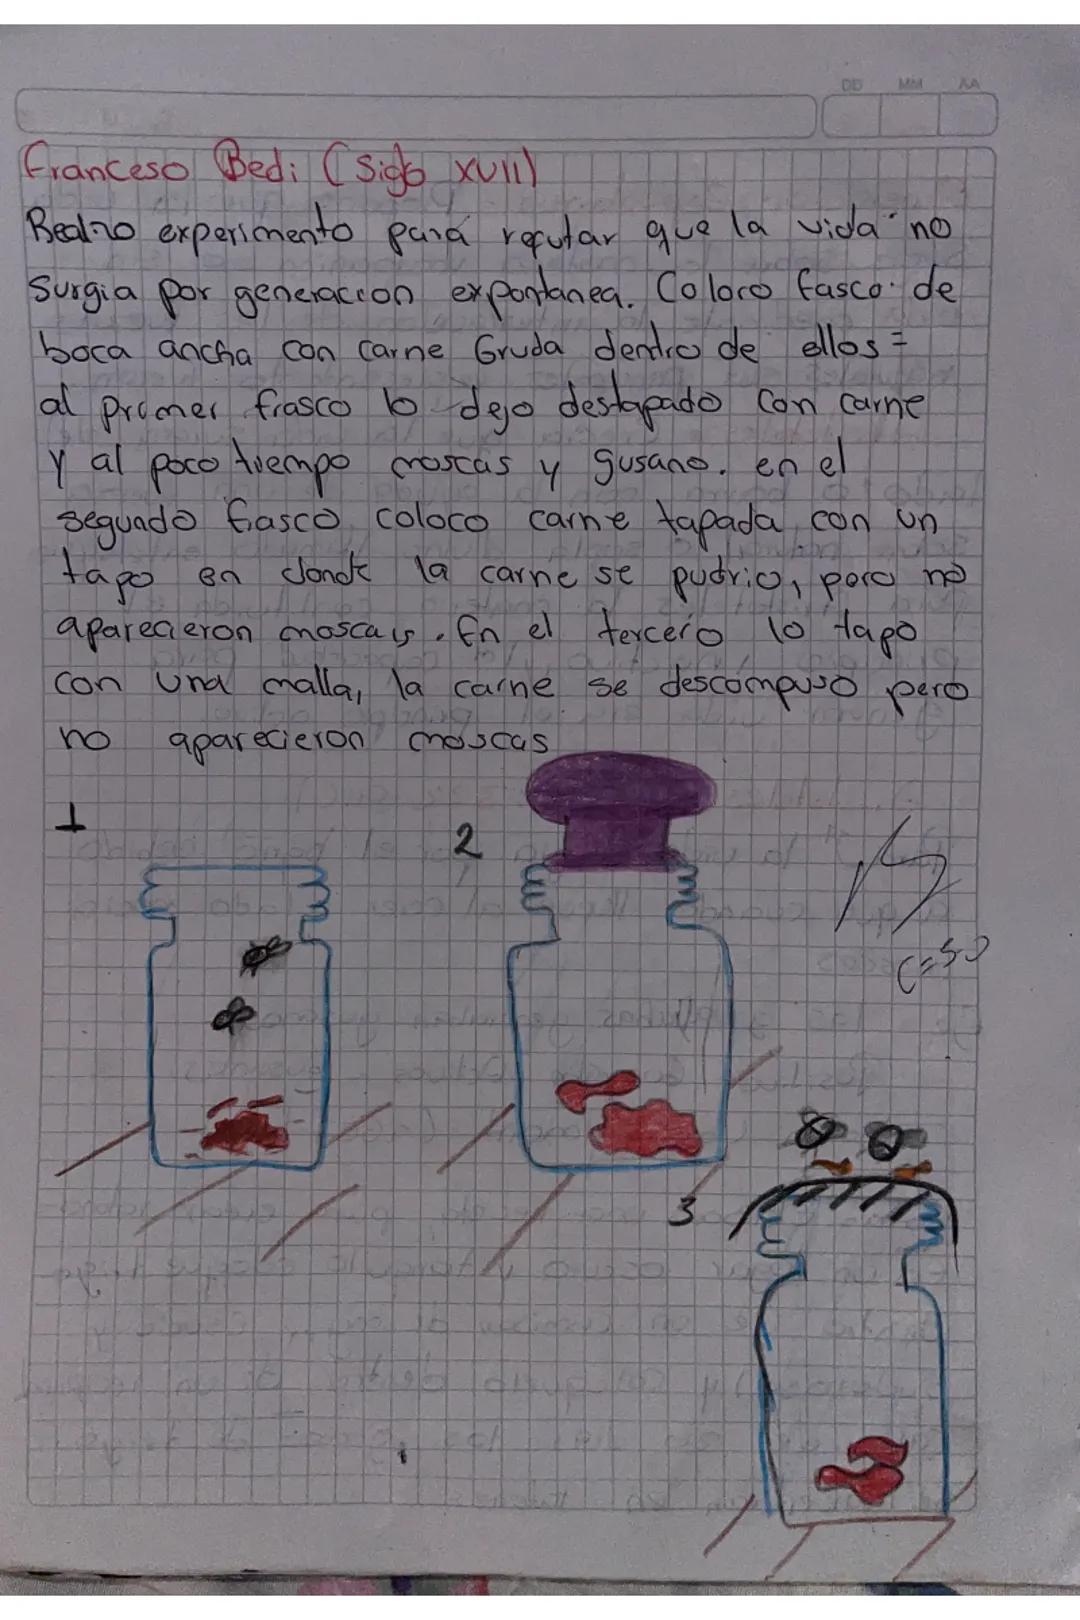 DD MM AA
Franceso Redi (Siglo XVII)
Realizo experimento para refutar que la vida no
Surgia por generaccion expontanea. Coloco fasco de
boca ancha con carne Gruda dentro de ellos=
al primer frasco lo dejo destapado con carne
y al poco tiempo moscas y gusano. en el
segundo frasco coloco carne tapada con un
tapo en donde la carne se pudrio, pero no
aparecieron moscas. En el tercero lo tapo
con una malla, la carne se descompuso pero
no aparecieron moscas
1
2
C=50
3